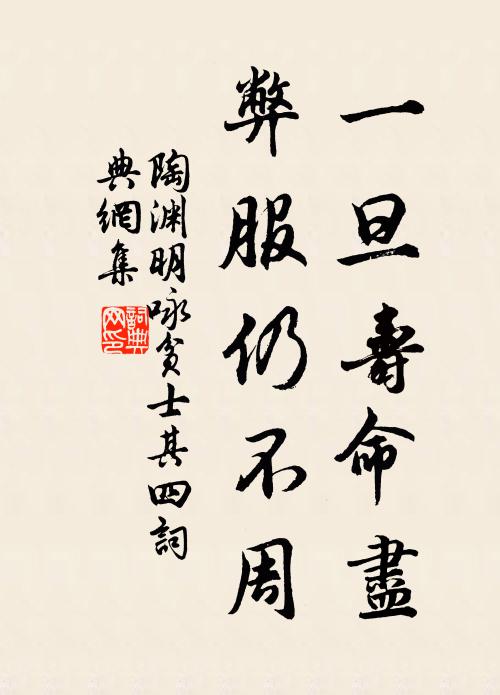 一旦壽命盡
弊服仍不周
陶渊明咏贫士其四詞
典網集
詞典
网印